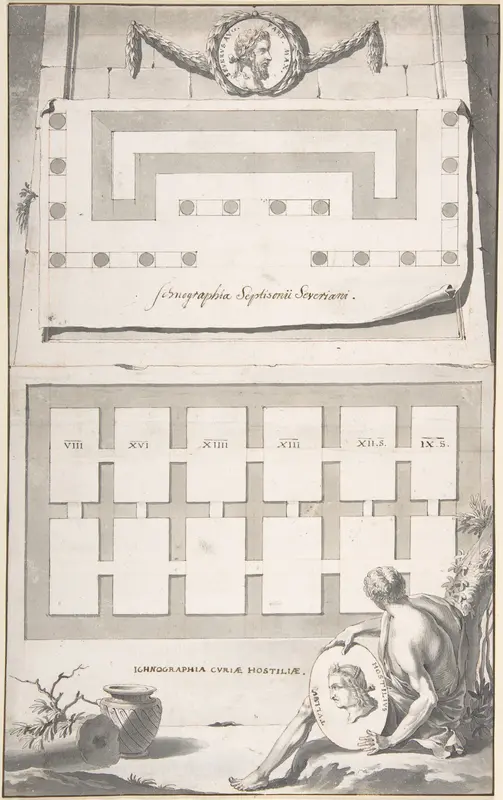 SEVERVS AVG. PIVS MAX
Ichnographia Septisonii Severiani.
VIII XVI XIIII XIII XII.S. IX.S.
ICHNOGRAPHIA CVRIÆ HOSTILIÆ.
TVLLVS HOSTILIVS